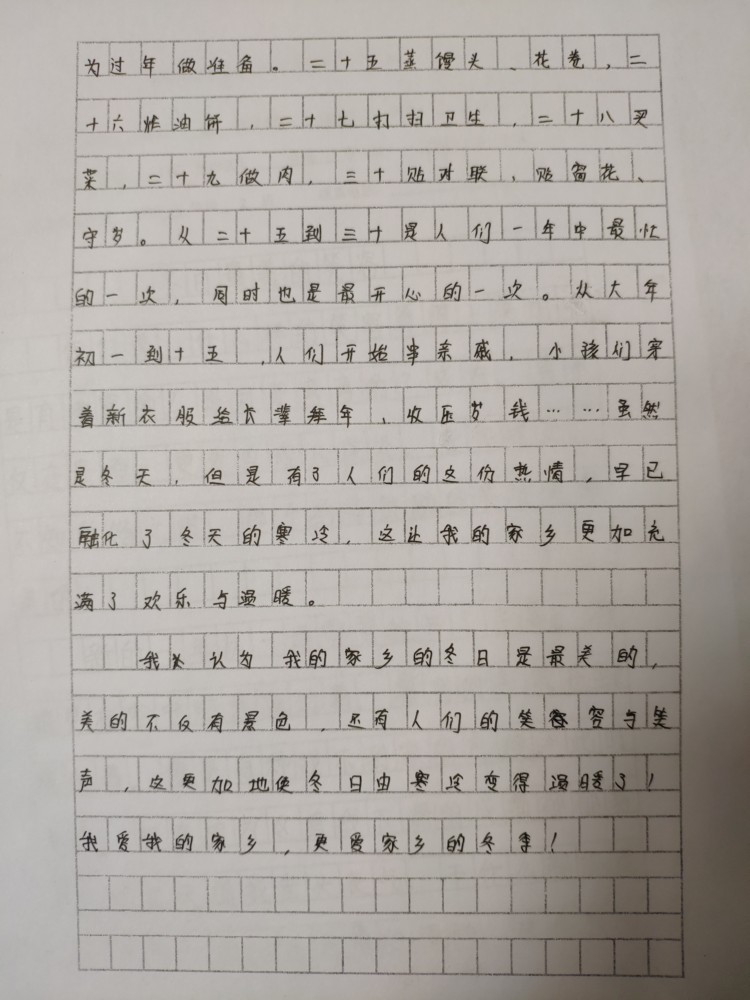 为过年做准备。二十五蒸馒头、花卷,二
十六炸油饼,二十七打扫卫生,二十八买
菜,二十九做肉,三十贴对联、贴窗花、
守岁。从二十五到三十是人们一年中最忙
的一次,同时也是最开心的一次。从大年
初一到十五,人们开始串亲戚,小孩们穿
着新衣服给长辈拜年、收压岁钱……虽然
是冬天,但是有了人们的这份热情,早已
融化了冬天的寒冷,这让我的家乡更加充
满了欢乐与温暖。
我认为我的家乡的冬日是最美的,
美的不仅有景色,还有人们的笑容与笑
声,这更加地使冬日由寒冷变得温暖了!
我爱我的家乡,更爱家乡的冬季!